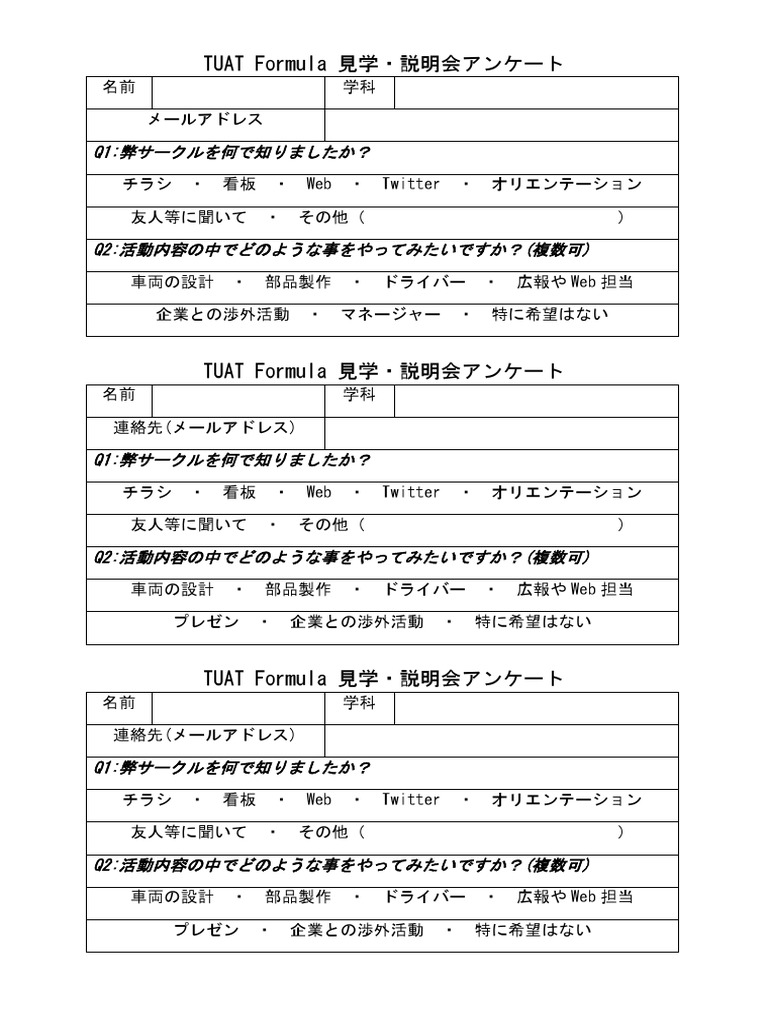 TUAT Formula 見学・説明会アンケート
名前 学科
メールアドレス
Q1:弊サークルを何で知りましたか？
チラシ ・ 看板 ・ Web ・ Twitter ・ オリエンテーション
友人等に聞いて ・ その他（ ）
Q2:活動内容の中でどのような事をやってみたいですか？(複数可)
車両の設計 ・ 部品製作 ・ ドライバー ・ 広報や Web 担当
企業との渉外活動 ・ マネージャー ・ 特に希望はない
TUAT Formula 見学・説明会アンケート
名前 学科
連絡先(メールアドレス)
Q1:弊サークルを何で知りましたか？
チラシ ・ 看板 ・ Web ・ Twitter ・ オリエンテーション
友人等に聞いて ・ その他（ ）
Q2:活動内容の中でどのような事をやってみたいですか？(複数可)
車両の設計 ・ 部品製作 ・ ドライバー ・ 広報や Web 担当
プレゼン ・ 企業との渉外活動 ・ 特に希望はない
TUAT Formula 見学・説明会アンケート
名前 学科
連絡先(メールアドレス)
Q1:弊サークルを何で知りましたか？
チラシ ・ 看板 ・ Web ・ Twitter ・ オリエンテーション
友人等に聞いて ・ その他（ ）
Q2:活動内容の中でどのような事をやってみたいですか？(複数可)
車両の設計 ・ 部品製作 ・ ドライバー ・ 広報や Web 担当
プレゼン ・ 企業との渉外活動 ・ 特に希望はない